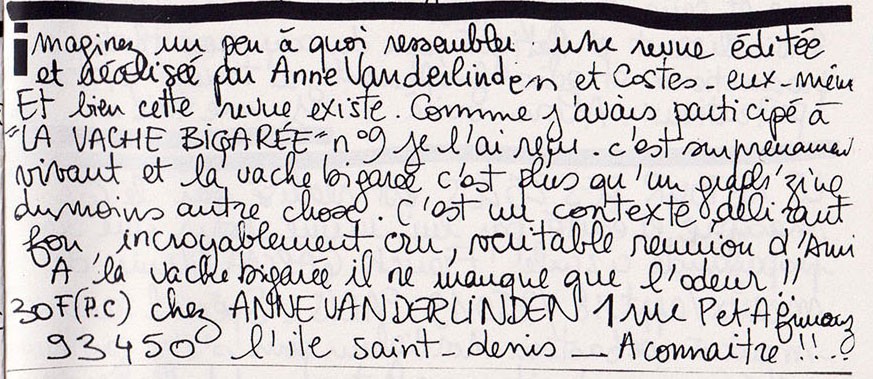 imaginez un peu à quoi ressembler une revue éditée
et réalisée par Anne Vanderlinden et Costes - eux-même
Et bien cette revue existe. Comme j'avais participé à
"LA VACHE BIGARÉE" n°9 je l'ai reçu. c'est surprenament
vivant et la vache bigarée c'est plus qu'un graph'zine
du moins autre chose. C'est un contexte délirant
fou incroyablement cru, véritable reunion d'Ami
A la vache bigarée il ne manque que l'odeur !!
30F(P.C) chez ANNE VANDERLINDEN 1 rue Pet
93450 l'ile saint-denis - A connaitre !!..